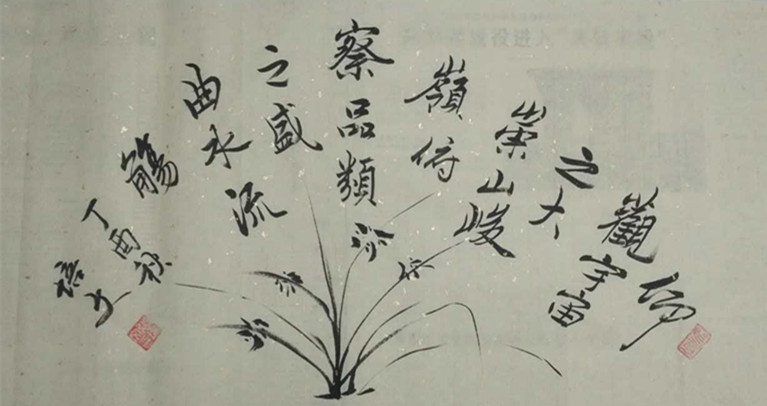 仰
觀宇宙
之大
崇山峻
嶺俯
察品類
之盛
曲水流
觴
丁酉秋